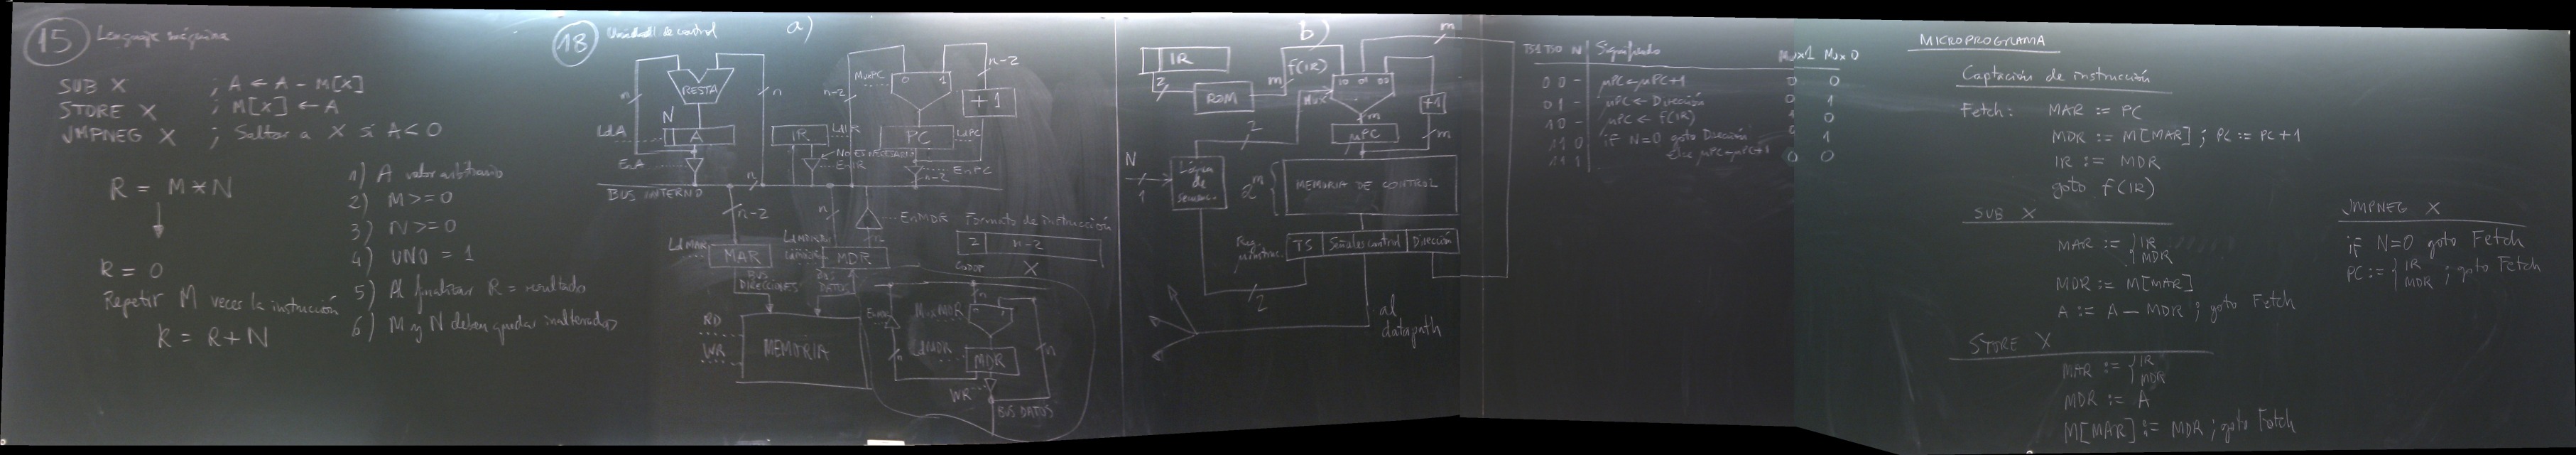 15 Lenguaje máquina
SUB X ; A ← A - M[X]
STORE X ; M[X] ← A
JMPNEG X ; Saltar a X si A<0
R = M*N
R = 0
Repetir M veces la instrucción
R = R+N
1) A valor arbitrario
2) M>=0
3) N>=0
4) UNO = 1
5) Al finalizar R = resultado
6) M y N deben quedar inalterados
18 Unidad de control a)
RESTA
n
n
N
LdA
A
EnA
IR
LdIR
No es necesario
EnIR
MuxPC
0 1
n-2
n-2
+1
PC
LdPC
EnPC
n-2
BUS INTERNO
n
n-2
n
EnMDR
n
LdMAR
MAR
MDR
BUS DIRECCIONES
BUS DATOS
RD
WR
MEMORIA
Formato de instrucción
2 n-2
X
MuxMDR
n
LdMDR
MDR
n
n
WR
BUS DATOS
b)
IR
2
ROM
m
f(IR)
Mux
10 01 00
m
+1
m
μPC
m
2
N
1
Lógica de
2^m
MEMORIA DE CONTROL
Reg.
TS Señales control Dirección
2
al datapath
TS1 TS0 N Significado Mux1 Mux0
0 0 - μPC←μPC+1 0 0
0 1 - μPC ← Dirección 0 1
1 0 - μPC ← f(IR) 1 0
1 1 0 if N=0 goto Dirección 0 1
1 1 1 else μPC←μPC+1 0 0
MICROPROGRAMA
Captación de instrucción
Fetch: MAR := PC
MDR := M[MAR] ; PC := PC+1
IR := MDR
goto f(IR)
SUB X
MAR := { IR
MDR
MDR := M[MAR]
A := A - MDR ; goto Fetch
STORE X
MAR := { IR
MDR
MDR := A
M[MAR] := MDR ; goto Fetch
JMPNEG X
if N=0 goto Fetch
PC := { IR
MDR ; goto Fetch